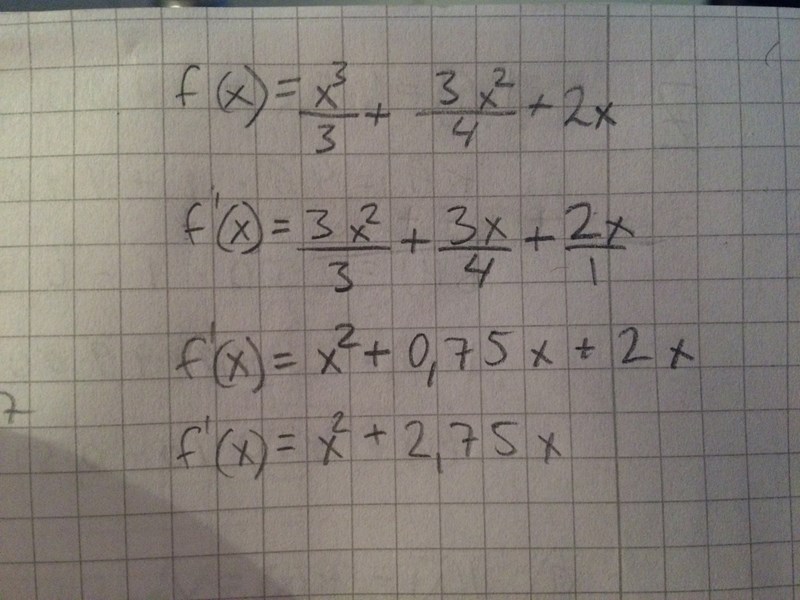 f(x) = x³/3 + 3x²/4 + 2x
f'(x) = 3x²/3 + 3x/4 + 2x/1
f'(x) = x² + 0,75x + 2x
f'(x) = x² + 2,75x